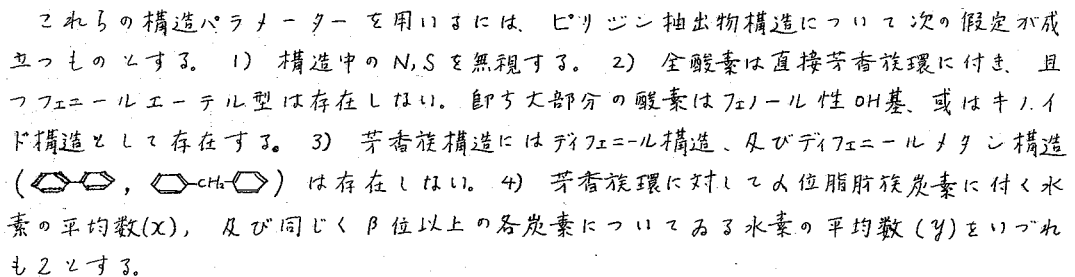 これらの構造パラメーターを用いるには、ピリジン抽出物構造について次の假定が成
立つものとする。 1) 構造中のN,Sを無視する。 2) 全酸素は直接芳香族環に付き、且
つフェニールエーテル型は存在しない。即ち大部分の酸素はフェノール性OH基、或はキノイ
ド構造として存在する。 3) 芳香族構造にはディフェニール構造、及びディフェニールメタン構造
( , -CH₂- ) は存在しない。 4) 芳香族環に対してα位脂肪族炭素に付く水
素の平均数(x), 及び同じくβ位以上の各炭素についてゐる水素の平均数(y)をいづれ
も2とする。